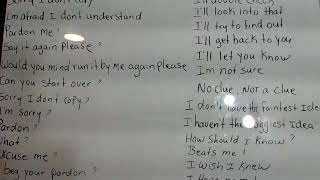 Sorry I don't copy
I'm afraid I don't understand
Pardon me?
Say it again please?
Would you mind run it by me again please
Can you start over?
Sorry I don't copy?
I'm sorry?
Pardon?
What?
Excuse me?
Beg your pardon?
I'll double check
I'll look into that
I'll try to find out
I'll get back to you
I'll let you know
I'm not sure
No clue, Not a clue
I don't have the faintest Idea
I haven't the biggest Idea
How Should I Know?
Beats me!
I wish I Knew